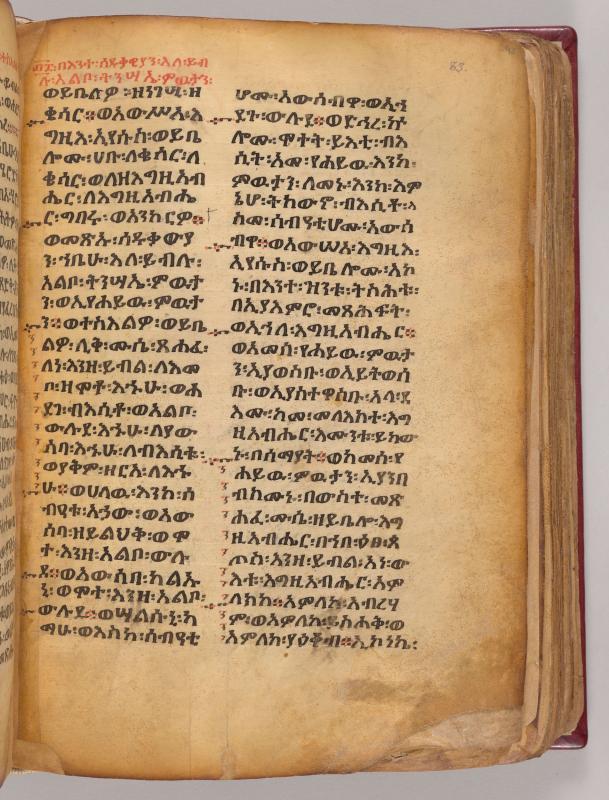 ፴፫፡በእንተ፡ሰዱቃዊያን፡እለ፡ይብ
ሉ፡አልቦ፡ትንሣኤ፡ምዉታን፡
83.
ወይቤልዎ፡ዘንጉሢ፡ዘ
ቄሳር፡ወአውሥአ፡እ
ግዚእ፡ኢየሱስ፡ወይቤ
ሎሙ፡ሀቡ፡ለቄሳር፡ለ
ቄሳር፡ወለዘእግዚአብ
ሔር፡ለእግዚአብሔ
ር፡ግበሩ፡ወአንከርዎ።
ወመጽኡ፡ሰዱቃውያ
ን፡ኀቤሁ፡እለ፡ይብሉ፡
አልቦ፡ትንሣኤ፡ምዉታ
ን፡ወኢየሐይዉ፡ምዉታ
ን፡።ወተስእልዎ፡ወይቤ
ልዎ፡ሊቅ፡ሙሴ፡ጸሐፈ፡
ለነ፡እንዘ፡ይብል፡ለእመ
ቦ፡ዘሞቶ፡እኁሁ፡ወሐ
ደገ፡ብእሲቶ፡ወአልቦ፡
ውሉደ፡እኁሁ፡ለያው
ሰባ፡እኁሁ፡ለብእሲቱ፡
ወያቅም፡ዘርአ፡ለእኁ
ሁ።ወሀለዉ፡እንከ፡ሰ
ብዐቱ፡አኀው፡ወአው
ሰባ፡ዘይልህቅ፡ወሞ
ተ፡እንዘ፡አልቦ፡ውሉ
ደ።ወአውሰባ፡ካልኡ
ኒ፡ወሞተ፡እንዘ፡አልቦ፡
ውሉደ።ወሣልሱኒ፡ከ
ማሁ፡ወእስከ፡ሰብዐቲ
ሆሙ፡አውሰብዋ፡ወኢኀ
ደጉ፡ውሉደ።ወድኅረ፡ኵ
ሎሙ፡ሞተት፡ይእቲ፡ብእ
ሲት፡አመ፡የሐይዉ፡እንከ፡
ምዉታን፡ለመኑ፡እንከ፡እም
ኔሆ፡ትከውኖ፡ብእሲቶ፡እ
ስመ፡ሰብዓቲሆሙ፡አውሰ
ብዋ።ወአውሥአ፡እግዚእ፡
ኢየሱስ፡ወይቤሎሙ፡አኮ
ኑ፡በእንተ፡ዝንቱ፡ትስሕቱ፡
በኢያእምሮ፡መጻሕፍት፡
ወኀይለ፡እግዚአብሔር።
ወአመሰ፡የሐይዉ፡ምዉታ
ን፡ኢያወስቡ፡ወኢይትወሰ
ቡ፡ወኢያስተዋስቡ፡አላ፡ደ
እሙ፡ከመ፡መላእክተ፡እግ
ዚአብሔር፡እሙንቱ፡ይከው
ኑ፡በሰማያት።ወከመሰ፡የ
ሐይዉ፡ምዉታን፡ኢያንበ
ብክሙኑ፡በውስተ፡መጽ
ሐፈ፡ሙሴ፡ዘይቤሎ፡እግ
ዚአብሔር፡በኀበ፡ዕፀ፡ጳ
ጦስ፡እንዘ፡ይብል፡አነ፡ው
እቱ፡እግዚአብሔር፡አም
ላክከ።አምላከ፡አብረሃ
ም፡ወአምላከ፡ይስሐቅ፡ወ
አምላከ፡ያዕቆብ።ኢኮነኬ፡